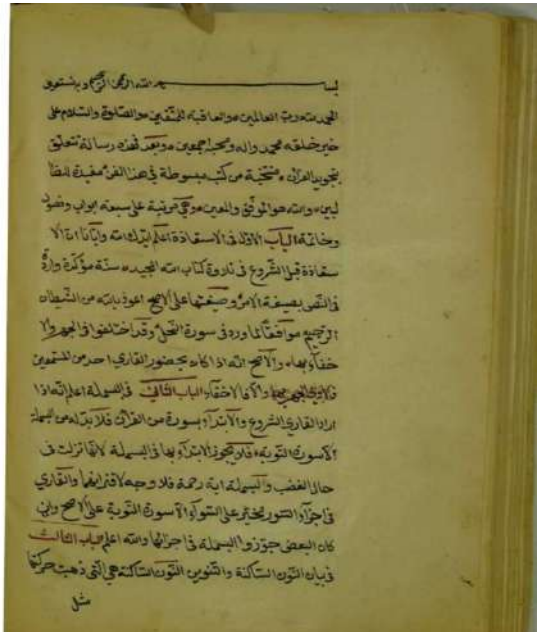 بسم الله الرحمن الرحيم وبه نستعين
الحمد لله رب العالمين والعاقبة للمتقين والصلوة والسلام على
خير خلقه محمد واله وصحبه اجمعين وبعد فهذه رسالة تتعلق
بتجويد القرآن منتخبة من كتب مبسوطة في هذا الفن مفيدة للطا
لبين والله هو الموفق والمعين وهي مرتبة على سبعة ابواب وفصول
وخاتمة الباب الاول في الاستعاذة اعلم ايدك الله وايانا ان الا
ستعاذة قبل الشروع في تلاوة كتاب الله المجيد سنة مؤكدة واردة
في النص بصيغة الامر وصيغتها على الاصح اعوذ بالله من الشيطان
الرجيم موافقا لما ورد في سورة النحل وقد اختلفوا في الجهر والا
خفاء بها والاصح انه اذا كان بحضور القاري احد من المستمعين
فالاولى الجهر بها والا فالاخفاء الباب الثاني في البسملة اعلم انه اذا
اراد القاري الشروع والابتداء بسورة من القرآن فلا بد له من البسملة
الا سورة التوبة فلا يجوز الابتداء بها في البسملة لانها نزلت في
حال الغضب والبسملة اية رحمة فلا وجه لاقترانهما والقاري
في اجزاء السور مخير على السواء الا سورة التوبة على الاصح وان
كان البعض جوزوا البسملة في اجزائها والله اعلم الباب الثالث
في بيان النون الساكنة والتنوين النون الساكنة هي التي ذهبت حركتها
مثل